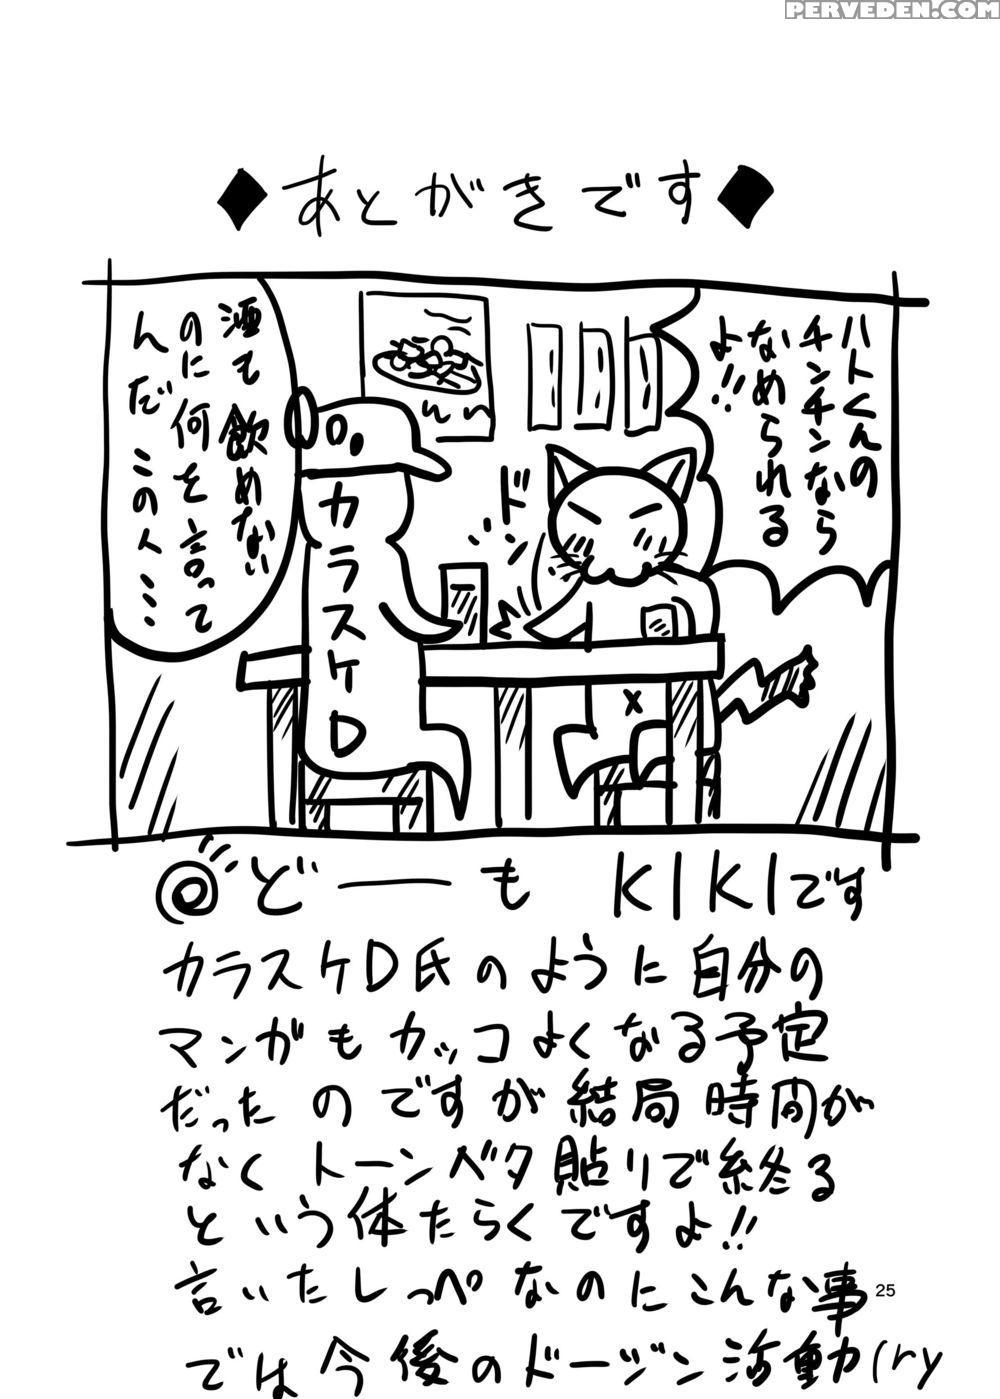 PERVEDEN.COM
◆あとがきです◆
ハトくんの
チンチンなら
なめられる
よ!!
酒も飲めない
のに何を言って
んだこの人……
ドン
カラスケD
x
どーも KIKIです
カラスケD氏のように自分の
マンガもカッコよくなる予定
だったのですが結局時間が
なくトーンベタ貼りで終る
という体たらくですよ!!
言いたしっぺなのにこんな事
では今後のドージン活動(ry
25